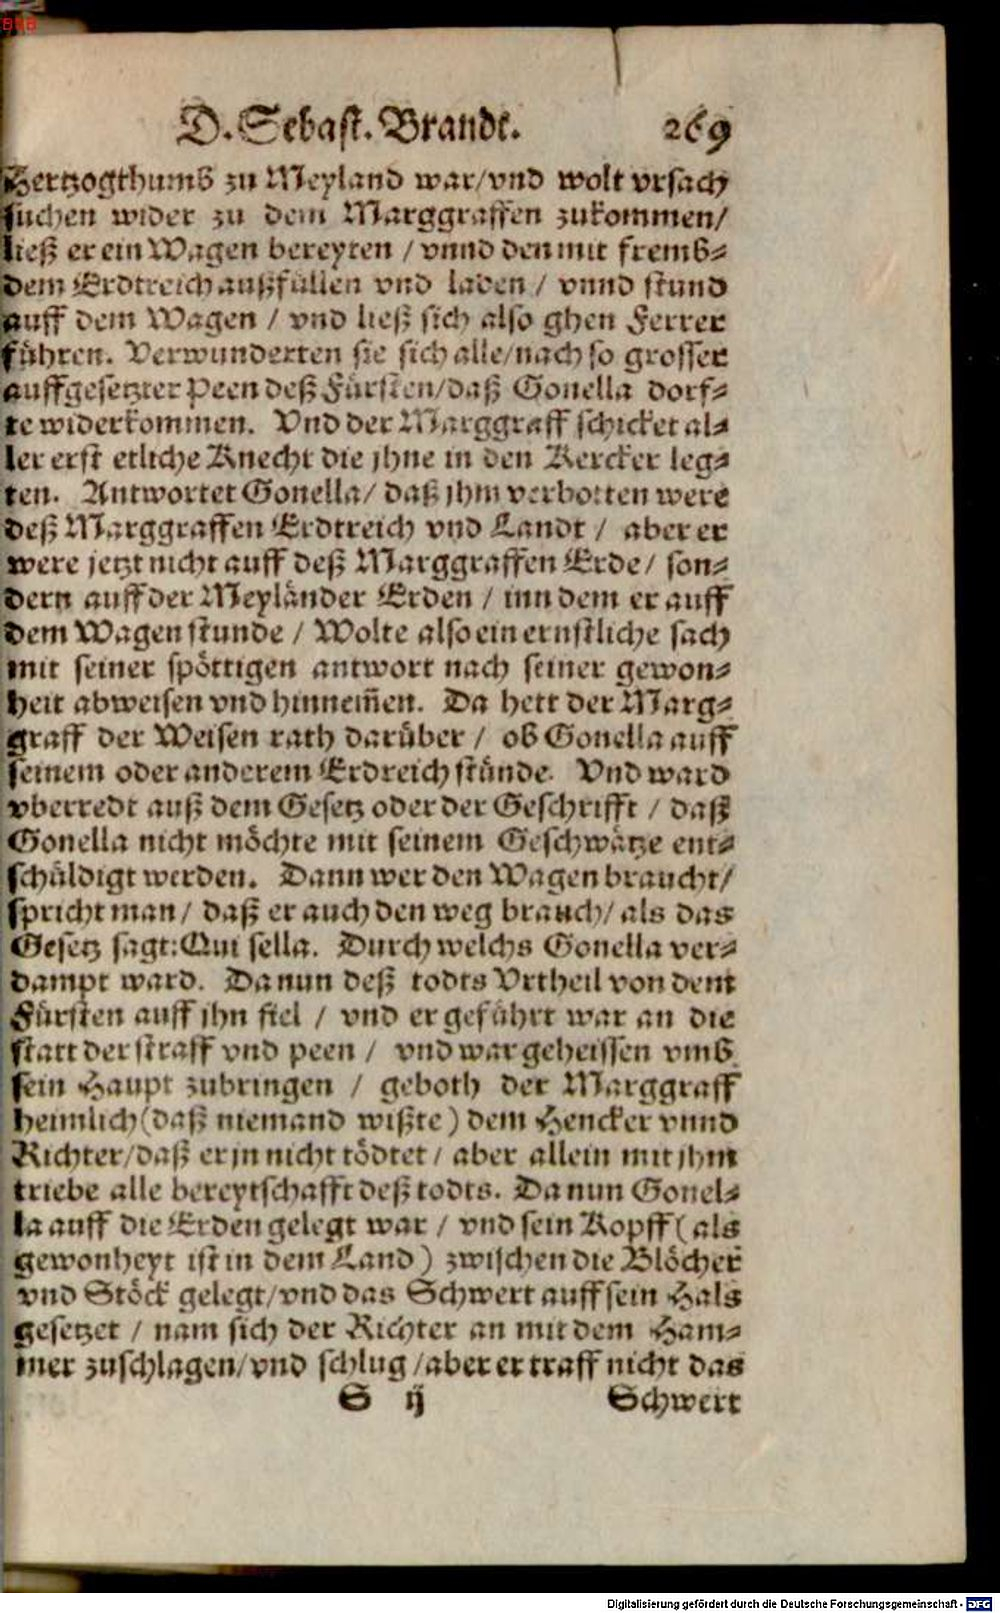 BSB
D. Sebast. Brandt. 269
Hertzogthumbs zu Meyland war/vnd wolt vrsach
suchen wider zu dem Marggraffen zukommen/
ließ er ein Wagen bereyten / vnnd den mit fremb-
dem Erdtreich außfüllen vnd laden / vnnd stund
auff dem Wagen / vnd ließ sich also ghen Ferrer
führen. Verwunderten sie sich alle/nach so grosser
auffgesetzter Peen deß Fürsten/daß Gonella dorf-
te widerkommen. Vnd der Marggraff schicket al-
ler erst etliche Knecht die jhne in den Kercker leg-
ten. Antwortet Gonella/ daß jhm verbotten were
deß Marggraffen Erdtreich vnd Landt / aber er
were jetzt nicht auff deß Marggraffen Erde/ son-
dern auff der Meyländer Erden / inn dem er auff
dem Wagen stunde / Wolte also ein ernstliche sach
mit seiner spöttigen antwort nach seiner gewon-
heit abweisen vnd hinnem̃en. Da hett der Marg-
graff der Weisen rath darüber / ob Gonella auff
seinem oder anderem Erdreich stünde. Vnd ward
vberredt auß dem Gesetz oder der Geschrifft / daß
Gonella nicht möchte mit seinem Geschwätze ent-
schüldigt werden. Dann wer den Wagen braucht/
spricht man/ daß er auch den weg brauch/ als das
Gesetz sagt: Qui sella. Durch welchs Gonella ver-
dampt ward. Da nun deß todts Vrtheil von dem
Fürsten auff jhn fiel / vnd er geführt war an die
statt der straff vnd peen / vnd war geheissen vmb
sein Haupt zubringen / geboth der Marggraff
heimlich (daß niemand wißte) dem Hencker vnnd
Richter/daß er jn nicht tödtet/ aber allein mit jhm
triebe alle bereytschafft deß todts. Da nun Gonel-
la auff die Erden gelegt war / vnd sein Kopff (als
gewonheyt ist in dem Land) zwischen die Blöcher
vnd Stöck gelegt/vnd das Schwert auff sein Hals
gesetzet / nam sich der Richter an mit dem Ham-
mer zuschlagen/vnd schlug /aber er traff nicht das
S ij Schwert
Digitalisierung gefördert durch die Deutsche Forschungsgemeinschaft - DFG